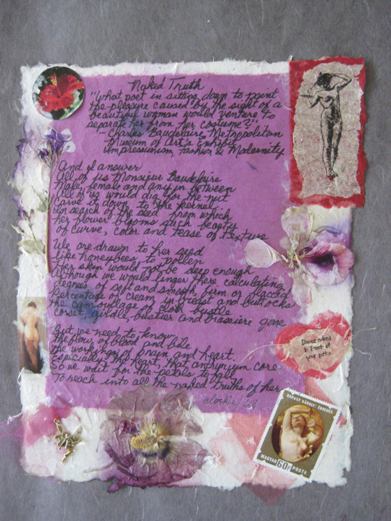 Naked Truth
"What poet in sitting down to paint
the pleasure caused by the sight of a
beautiful woman would venture to
separate her from her costume?"
- Charles Baudelaire, Metropolitan
Museum of Art's Exhibit
Impressionism, Fashion & Modernity
And I answer
All of us Monsieur Baudelaire
Male, female and any in between
All of us would die for the nut
Carve it down to the kernel
In search of the seed from which
her flower blooms such beauty
of curve, color and tease of texture
We are drawn to her seed
Like honeybees to pollen
Her skin would not be deep enough
Although we would linger there calculating
degrees of soft and smooth, firm or placid
Percentage of cream in breast and buttocks
the camouflage of bustle
Corset, girdle, bustier and brassiere gone
But we need to know
the flow of blood and bile
The workings of brain and heart
Especially the heart, that core
So we wait for the petals to fall
To reach into all the naked truths of her
MAGYAR POSTA
60f